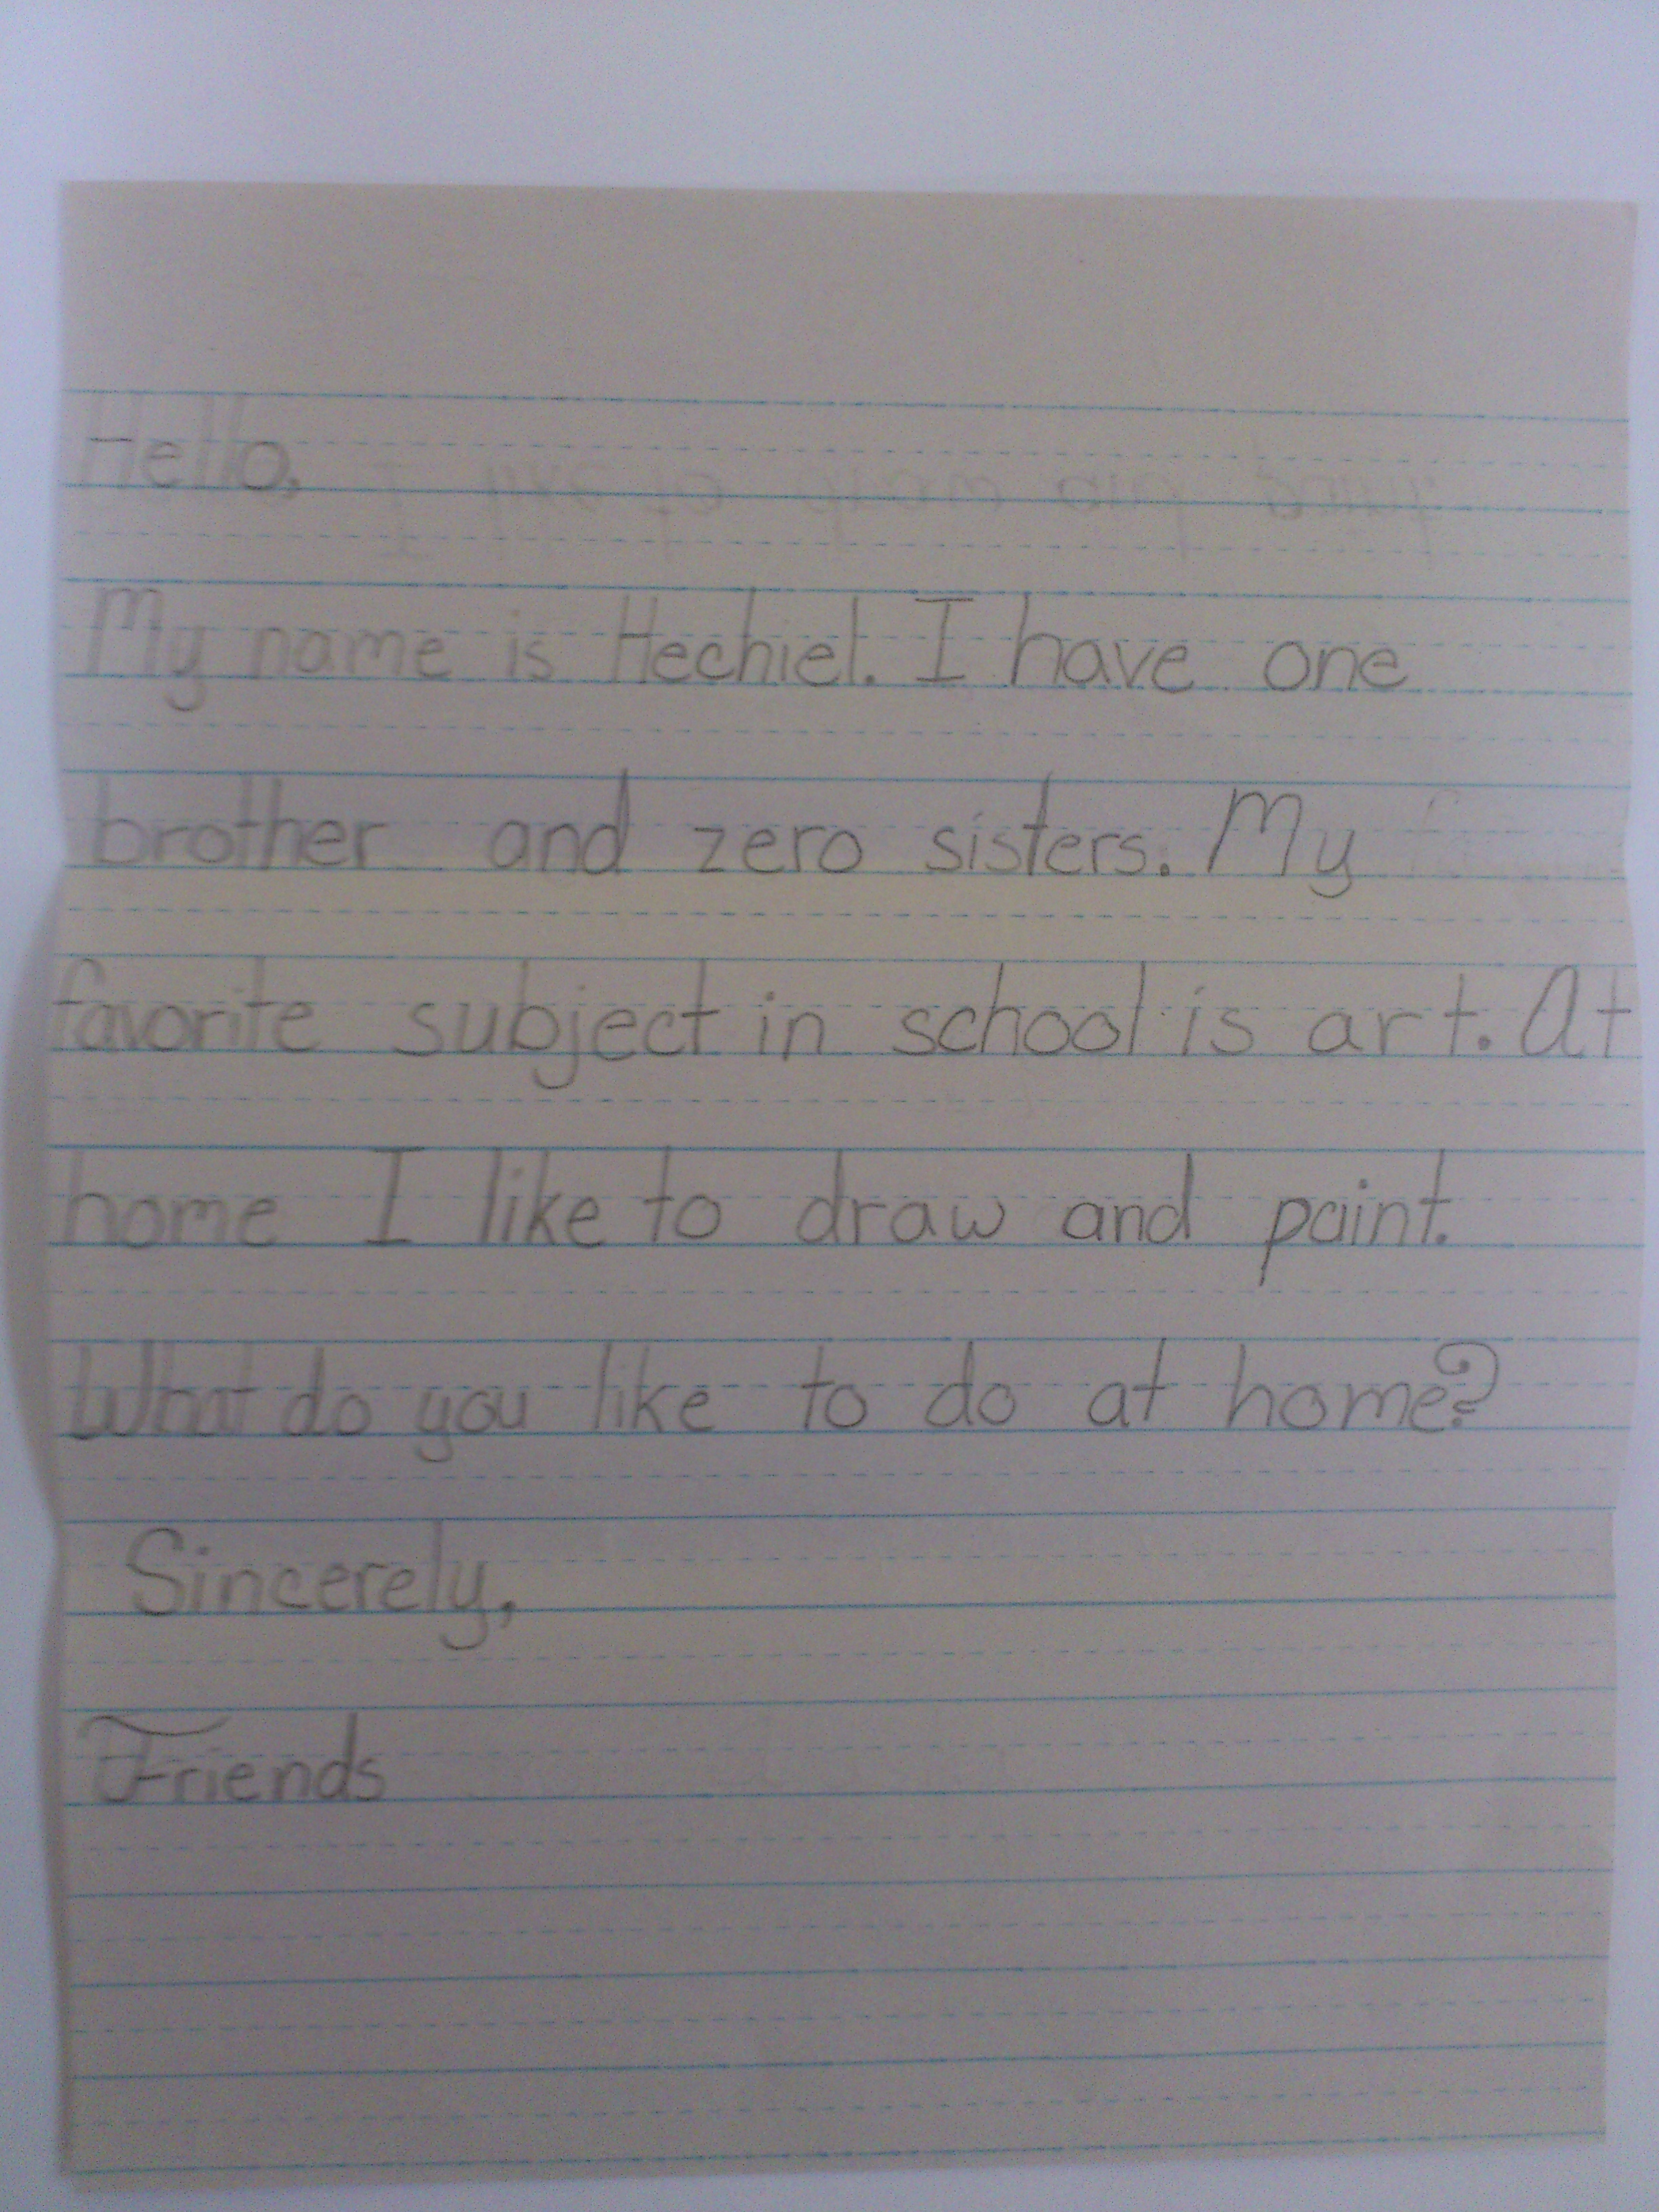 Hello,
My name is Hechiel. I have one
brother and zero sisters. My
favorite subject in school is art. At
home I like to draw and paint.
What do you like to do at home?
Sincerely,
Friends